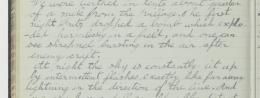 We were berthed in tents about quarter
of a mile from the village. The first
night Fritz dropped a bomb which explo-
ded harmlessly in a field, and one can
see shrapnel bursting in the air after
enemy craft.
At night the sky is constantly lit up
by intermittent flashes exactly like far away
lightning in the direction of the line. And